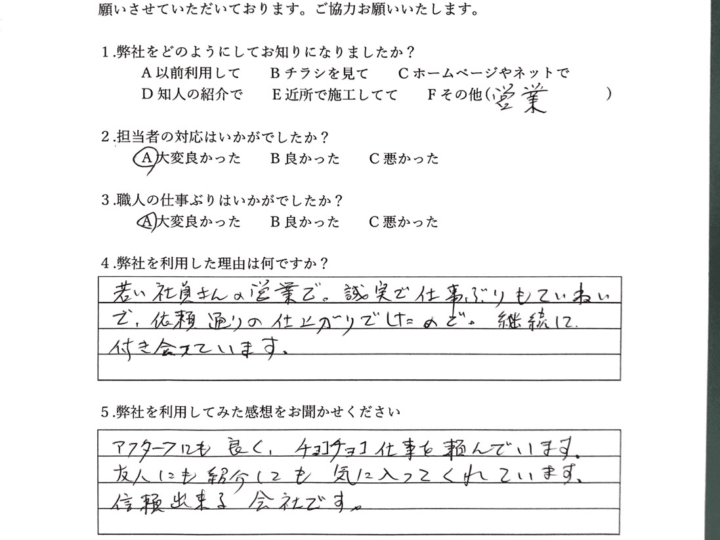 願いさせていただいております。ご協力お願いいたします。
1.弊社をどのようにしてお知りになりましたか？
A 以前利用して B チラシを見て C ホームページやネットで
D 知人の紹介で E 近所で施工してて F その他(営業 )
2.担当者の対応はいかがでしたか？
A 大変良かった B 良かった C 悪かった
3.職人の仕事ぶりはいかがでしたか？
A 大変良かった B 良かった C 悪かった
4.弊社を利用した理由は何ですか？
若い社員さんの営業で。誠実で仕事ぶりもていねい
で、依頼通りの仕上がりでしたので。継続して
付き合っています。
5.弊社を利用してみた感想をお聞かせください
アフターフにも良く、チョコチョコ仕事を頼んでいます。
友人にも紹介しても気に入ってくれています。
信頼出来る会社です。